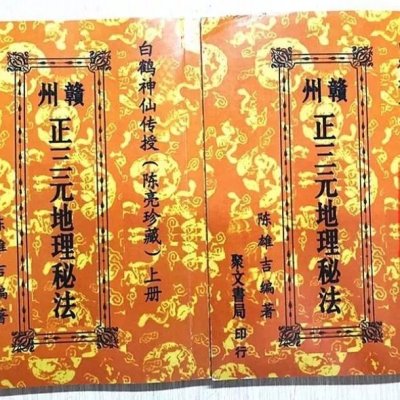 白鹤神仙传授（陈亮珍藏）上册
贛州
正三元地理秘法
贛州
正三元地理秘法
陈雄吉编著
聚文書局 印行